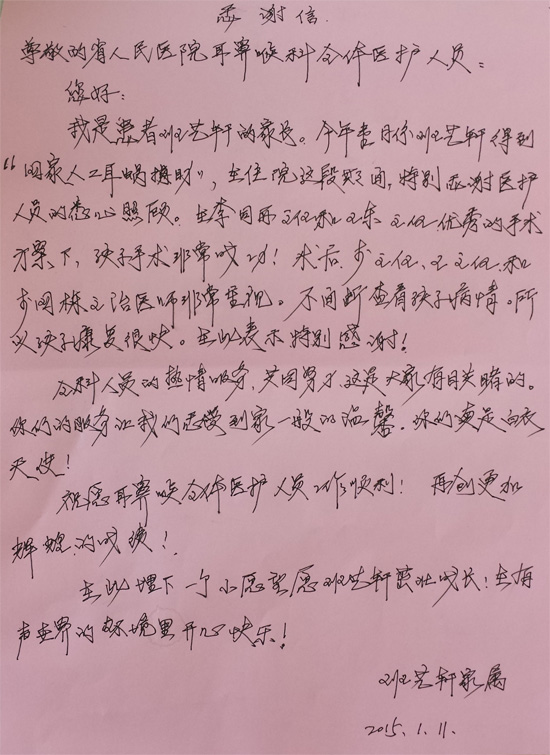 感谢信
尊敬的省人民医院耳鼻喉科全体医护人员:
您好:
我是患者刘艺轩的家长。今年壹月份刘艺轩得到
“国家人工耳蜗捐助”,在住院这段期间,特别感谢医护
人员的悉心照顾。在李园香主任和 主任优秀的手术
方案下,孩子手术非常成功!术后, 主任、王主任和
主治医师非常重视。不间断查看孩子病情。所
以孩子康复很快。在此表示特别感谢!
全科人员的热情服务,共同努力这是大家有目共睹的。
你们的服务让我们感受到家一般的温馨。你们真是白衣
天使!
祝愿耳鼻喉全体医护人员工作顺利!再创更加
辉煌的成绩!
在此埋下一个小愿望愿刘艺轩茁壮成长!在有
声世界的环境里开心快乐!
刘艺轩家属
2015.1.11.